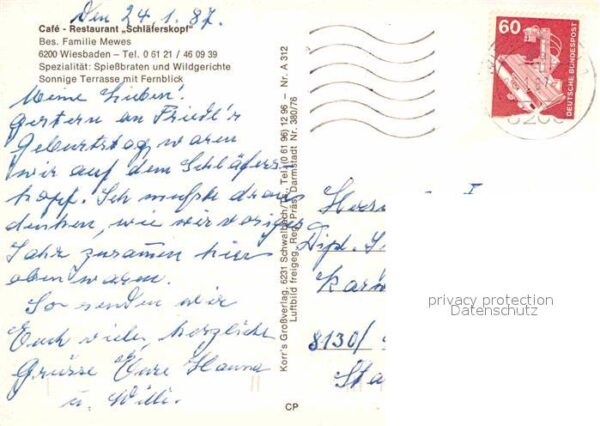 Den 24.1.87.
Café - Restaurant „Schläferskopf"
Bes. Familie Mewes
6200 Wiesbaden - Tel. 0 61 21 / 46 09 39
Spezialität: Spießbraten und Wildgerichte
Sonnige Terrasse mit Fernblick
Meine Lieben!
Gestern an Friedl's
Geburtstag waren
wir auf dem Schläfers-
kopf. Ich mußte dran
denken, wie wir voriges
Jahr zusammen hier
oben waren.
So senden wir
Euch viele, herzliche
Grüsse Eure Hanna
u. Willi.
Korr's Großverlag, 6231 Schwalbach/Ts., Tel. (0 61 96) 12 96 – Nr. A 312
Luftbild freigeg. Reg. Präs. Darmstadt Nr. 380/76
CP
60
DEUTSCHE BUNDESPOST
Dipl.
8130/
Sta
privacy protection
Datenschutz